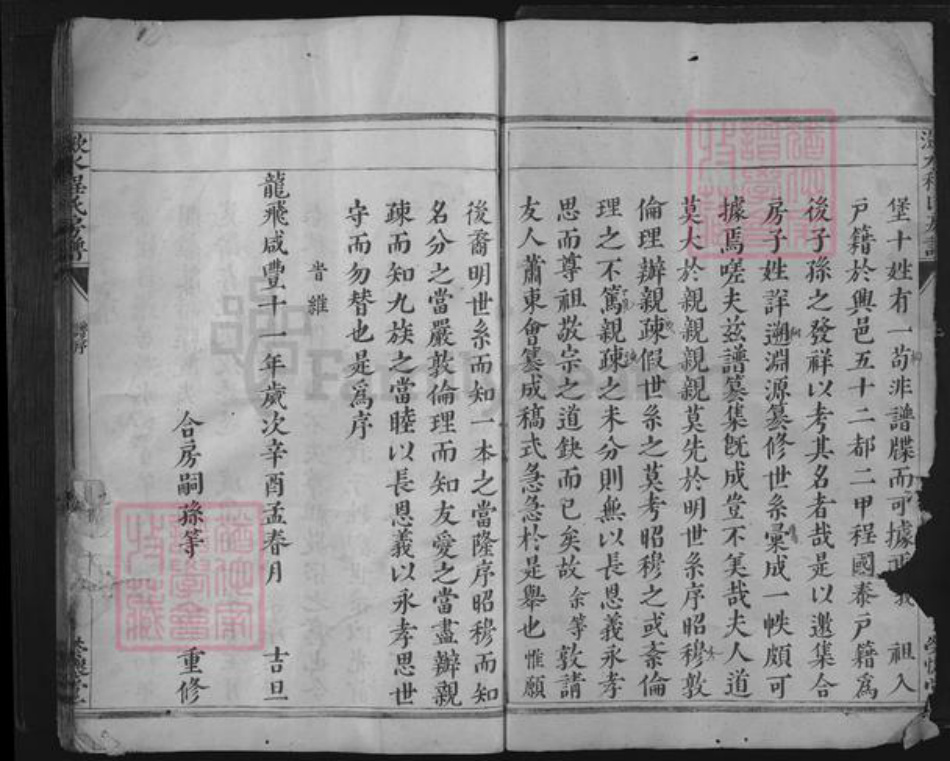 堡十姓有一苟非譜牒而可據 祖入
戶籍於興邑五十二都二甲程國泰戶籍爲
後子孫之發祥以考其名者哉是以邀集合
房子姓詳遡淵源纂修世系彙成一帙頗可
據焉嗟夫兹譜纂集旣成豈不美哉夫人道
莫大於親親親親莫先於明世系序昭穆敦
倫理辦親疎假世系之莫考昭穆之或紊倫
理之不篤親疎之未分則無以長恩義永孝
思而尊祖敬宗之道缺而已矣故余等敦請
友人蕭東會纂成稿式急急於是舉也惟願
後裔明世系而知一本之當隆序昭穆而知
名分之當嚴敦倫理而知友愛之當盡辦親
疎而知九族之當睦以長恩義以永孝思世
守而勿替也是爲序
旹維
龍飛咸豐十一年歲次辛酉孟春月 吉旦
合房嗣孫等 重修
程氏房譜